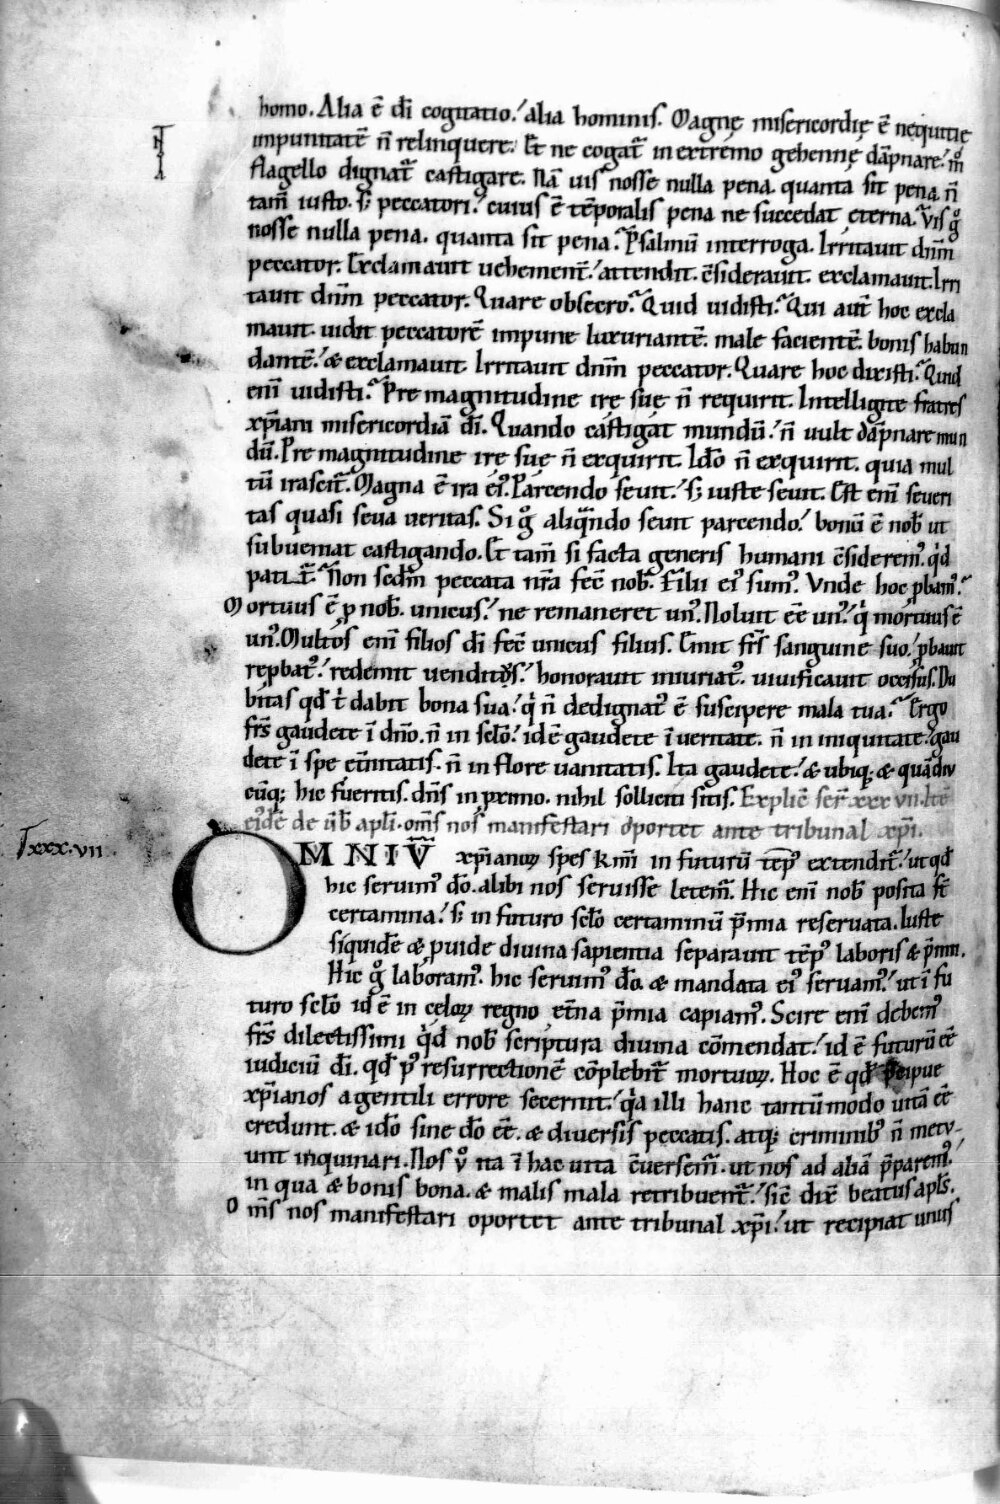 homo. Alia ē dī cogitatio.' alia hominis. Magnę misericordię ē nequitię
impunitatē n̄ relinquere. Et ne cogat̄ in extremo gehennę dāpnare.' m̊
flagello dignat̄ castigare. Nā uis nosse nulla pena. quanta sit pena. n̄
tam iusto. s; peccatori.' cuius ē tēporalis pena ne succedat ęterna. Vis g̊
nosse nulla pena. quanta sit pena. Psalmū interroga. Irritauit dn̄m
peccator. Exclamauit uehement̄.' attendit. c̄siderauit. exclamauit. Irri
tauit dn̄m peccator. Quare obsecro. Quid uidisti. Qui aut̄ hoc excla
mauit. uidit peccatorē impune luxuriantē. male facientē. bonis habun
dantē.' & exclamauit. Irritauit dn̄m peccator. Quare hoc dixisti. Quid
enī uidisti. Pre magnitudine irę suę n̄ requirit. Intelligite fratres
xp̄iani misericordiā dī. Quando castigat mundū.' n̄ uult dāpnare mun
dū. Pre magnitudine irę suę n̄ exquirit. Ido̅ n̄ exquirit. quia mul
tū irascit̄. Magna ē ira ei'. Parcendo seuit.' s; iuste seuit. Est enī seueri
tas quasi seua ueritas. Si g̊ aliqn̄do seuit parcendo.' bonū ē nob̄ ut
subueniat castigando. Et tam̄ si facta generis humani c̄siderem'. qd̄
pati. Non scdm̄ peccata nr̄a fec̄ nob̄. Filii ei' sum'. Vnde hoc pbam'.
Mortuus ē p nob̄. unicus.' ne remaneret un'. Noluit ēē un'.' q̇ mortuus ē
un'. Multos enī filios dī fec̄ unicus filius. Emit fr̄s sanguine suo.' pbauit
repbat'.' redemit uenditos.' honorauit iniuriat'. uiuificauit occisus. Du
bitas qd̄ t̄ dabit bona sua.' q̇ n̄ dedignat' ē suscipere mala tua. Ergo
fr̄s gaudete ī dn̄o. n̄ in sclo̅.' id ē gaudete ī ueritate. n̄ in iniquitate.' gau
dete ī spe et̄nitatis. n̄ in flore uanitatis. Ita gaudete.' & ubiq; & quādiu
cūq; hic fueritis. dn̄s in primo. nihil solliciti sitis. Explic̄ ser̄ xxxvii. Itē
eide̅ de ūb̄ apli̅. om̄s nos manifestari oportet ante tribunal xp̄i.
xxx.vii
OMNIV̄ xp̄ianoꝝ spes k̄mi in futurū temp' extendit̄.' ut qd̄
hic seruim' do̅. alibi nos seruisse letem̄. Hic enī nob̄ posita st̄
certamina.' s; in futuro sclo̅ certaminū p̄mia reseruata. Iuste
siquide̅ & puide diuina sapientia separauit temp' laboris & p̄mii.
Hic g̊ laboram'. hic seruim' do̅. & mandata ei' seruam'.' ut ī fu
turo sclo̅ id ē in cęloꝝ regno et̄na p̄mia capiam'. Scire enī debem'
fr̄s dilectissimi qd̄ nob̄ scriptura diuina cōmendat.' id ē futurū ēē
iudiciū dī. qd̄ p' resurrectionē cōplebit̄ mortuoꝝ. Hoc ē qd̄ p̄cipue
xp̄ianos a gentili errore secernit.' q̇a illi hanc tantūmodo uitā ēē
credunt. & ido̅ sine do̅ ēē. & diuersis peccatis. atq; criminib' n̄ metu-
unt inquinari. Nos v̊ ita ī hac uita c̄uersem̄. ut nos ad aliā p̄parem'.'
in qua & bonis bona. & malis mala retribuent̄.' sic̄ dix̄ beatus apl̄s.
Om̄s nos manifestari oportet ante tribunal xp̄i.' ut recipiat unus